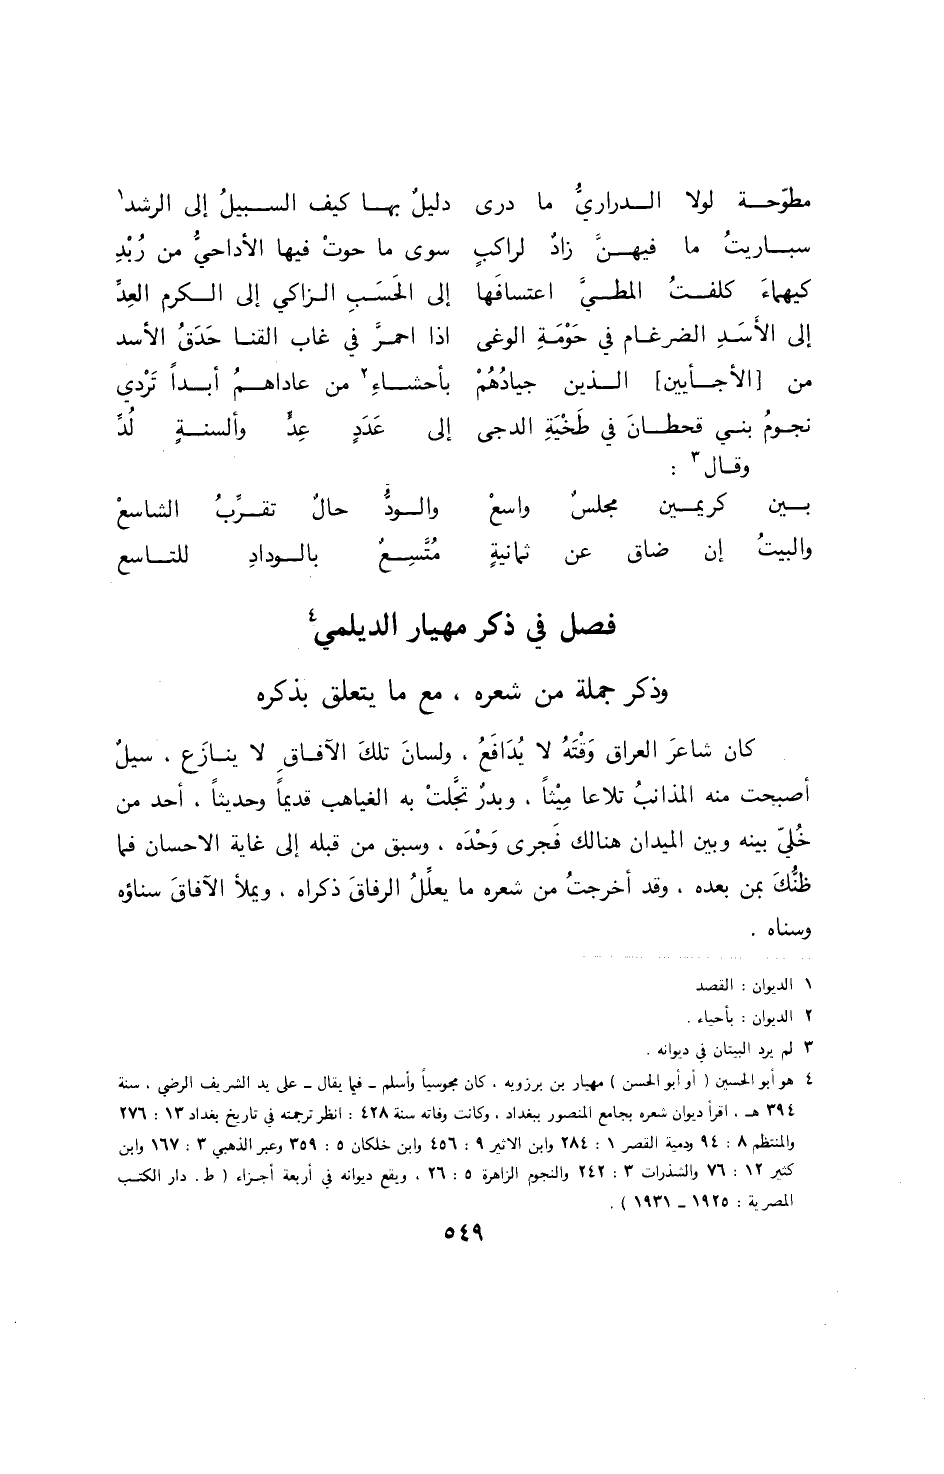 مطوّحة لولا الدراريُّ ما درى دليلٌ بها كيف السبيلُ إلى الرشد١
سباريتُ ما فيهنَّ زادٌ لراكبٍ سوى ما حوتْ فيها الأداحيُّ من رُبْدِ
كيهاءَ كلفتُ المطيَّ اعتسافَها إلى الحَسَبِ الزاكي إلى الكرم العِدِّ
إلى الأسَدِ الضرغام في حَوْمَةِ الوغى اذا احمرَّ في غاب القنا حَدَقُ الأسد
من [الأجأيين] الذين جيادُهُمْ بأحشاءِ٢ من عاداهمُ أبداً تَرْدي
نجومُ بني قحطانَ في طَخْيَةِ الدجى إلى عَدَدٍ عِدٍّ وألسنةٍ لُدِّ
وقال٣ :
بين كريمين مجلسٌ واسعْ والودُّ حالٌ تقرِّبُ الشاسعْ
والبيتُ إن ضاق عن ثمانيةٍ مُتَّسِعٌ بالودادِ للتاسع
فصل في ذكر مهيار الديلمي٤
وذكر جملة من شعره ، مع ما يتعلق بذكره
كان شاعرَ العراق وَقْتَهُ لا يُدَافَعُ ، ولسانَ تلكَ الآفاقِ لا ينازَع ، سيلٌ
أصبحت منه المذانبُ تلاعا مِيْثاً ، وبدرٌ تجَّلتْ به الغياهب قديماً وحديثاً ، أحد من
خُليّ بينه وبين الميدان هنالك فَجرى وَحْدَه ، وسبق من قبله إلى غاية الاحسان فما
ظنُّكَ بمن بعده ، وقد أخرجتُ من شعره ما يعلِّلُ الرفاقَ ذكراه ، ويملأ الآفاقَ سناؤه
وسناه .
١ الديوان : القصد
٢ الديوان : بأحياء .
٣ لم يرد البيتان في ديوانه .
٤ هو أبو الحسين ( أو أبو الحسن ) مهيار بن برزويه ، كان مجوسياً وأسلم ـ فيما يقال ـ على يد الشريف الرضي ، سنة
٣٩٤ هـ ، اقرأ ديوان شعره بجامع المنصور ببغداد ، وكانت وفاته سنة ٤٢٨ : انظر ترجمته في تاريخ بغداد ١٣ : ٢٧٦
والمنتظم ٨ : ٩٤ ودمية القصر ١ : ٢٨٤ وابن الاثير ٩ : ٤٥٦ وابن خلكان ٥ : ٣٥٩ وعبر الذهبي ٣ : ١٦٧ وابن
كثير ١٢ : ٧٦ والشذرات ٣ : ٢٤٢ والنجوم الزاهرة ٥ : ٢٦ ، ويقع ديوانه في أربعة أجزاء ( ط . دار الكتب
المصرية : ١٩٢٥ ـ ١٩٣١ ) .
٥٤٩